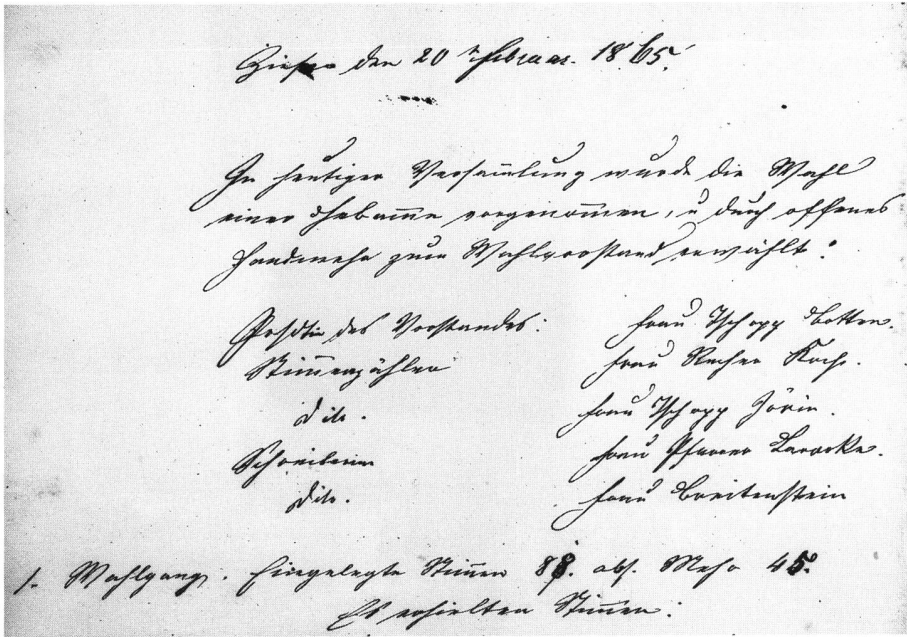 Ziefen den 20 n Februar. 1865.
In heutiger Versam̄lung wurde die Wahl
einer Hebam̄e vorgenom̄en, u durch offenes
Handmehr zum Wahlvorstand erwählt:
Präsdtin des Vorstandes: Frau Tschopp
Stim̄enzähler Frau Recher Koch.
dito. Frau Tschopp Jörin.
Schreiberin Frau Pfarrer Laroche.
dito. Frau Breitenstein
1. Wahlgang. Eingelegte Stim̄en 88. abs. Mehr 45.
Es erhielten Stim̄en: